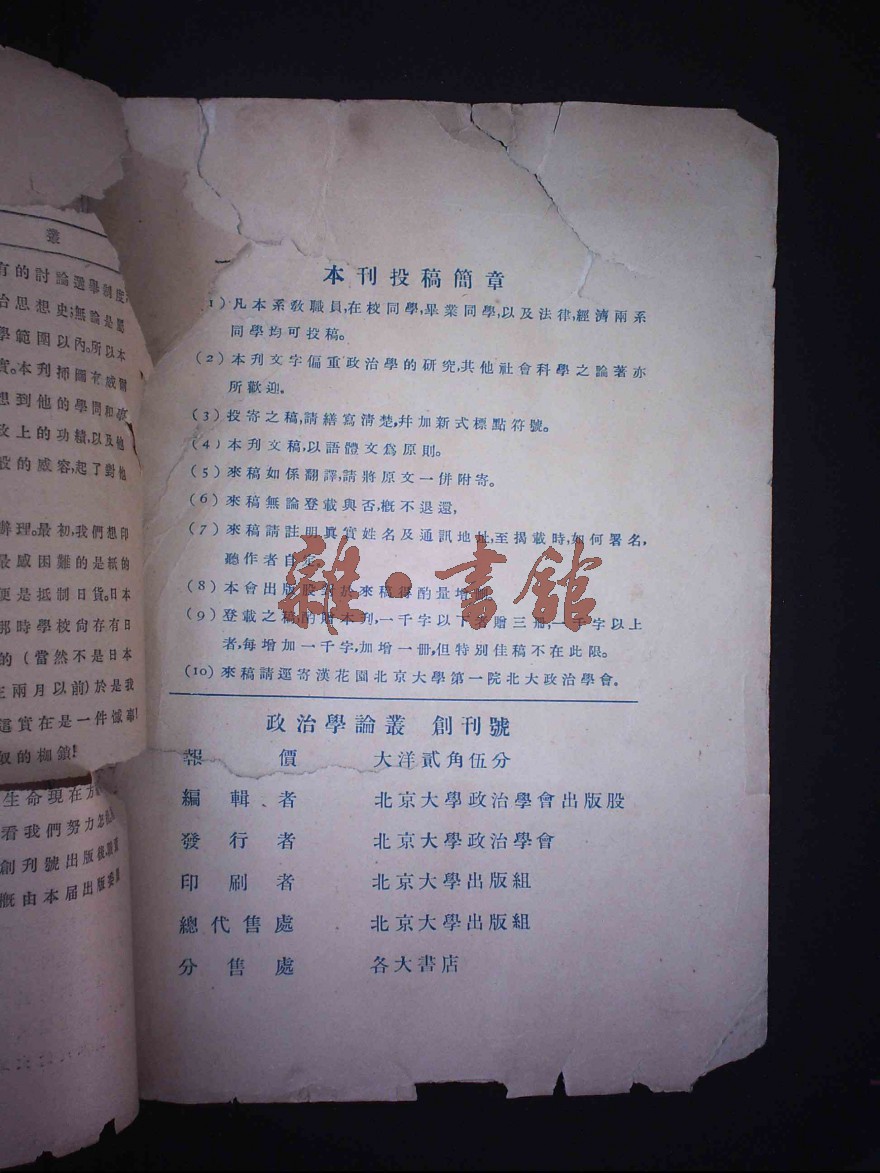 叢
有的討論選舉制度
治思想史;無論是
學範圍以內。所以本
實。本刊插圖
想到他的學問和
政上的功績,以及他
般的威容,起了對他
辦理。最初,我們想印
最感困難的是紙的
便是抵制日貨。日本
那時學校尙存有日
的(當然不是日本
在兩月以前)於是我
這實在是一件憾事!
奴的枷鎖!
生命現在方
看我們努力怎
創刊號出版後,
槪由本屆出版委
本刊投稿簡章
(1)凡本系敎職員,在校同學,畢業同學,以及法律,經濟兩系
同學均可投稿。
(2)本刊文字偏重政治學的研究,其他社會科學之論著亦
所歡迎。
(3)投寄之稿,請繕寫淸楚,幷加新式標點符號。
(4)本刊文稿,以語體文爲原則。
(5)來稿如係翻譯,請將原文一併附寄。
(6)來稿無論登載與否,槪不退還,
(7)來稿請註明眞實姓名及通訊地址,至揭載時,如何署名,
聽作者自定。
(8)本會出版股對於來稿得酌量增刪
(9)登載之稿,酌贈本刊,一千字以下者贈三册,一千字以上
者,每增加一千字,加增一册,但特別佳稿不在此限。
(10)來稿請逕寄漢花園北京大學第一院北大政治學會。
政治學論叢 創刊號
報價 大洋貳角伍分
編輯者 北京大學政治學會出版股
發行者 北京大學政治學會
印刷者 北京大學出版組
總代售處 北京大學出版組
分售處 各大書店
雜·書館